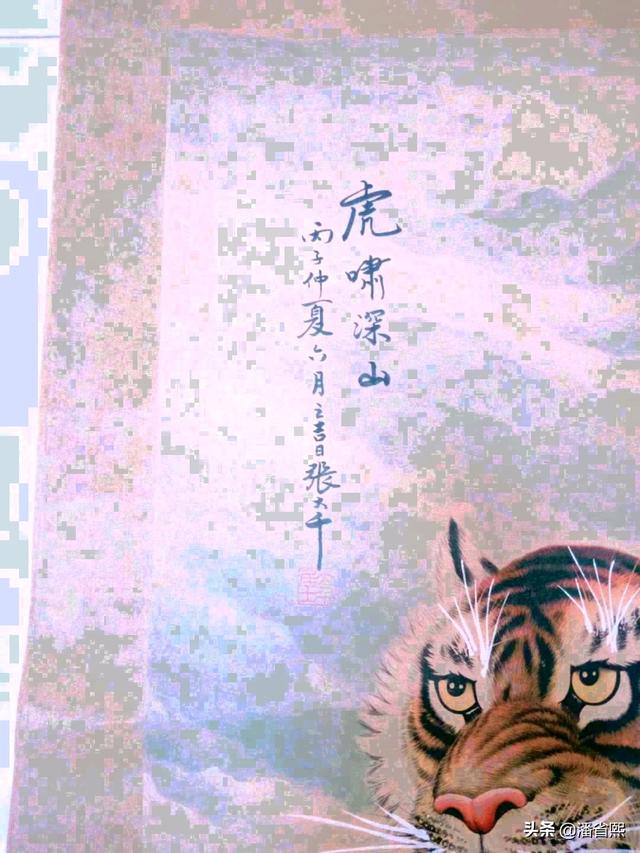 虎啸深山
丙子仲夏六月之吉日張大千
头条 @潘省熙